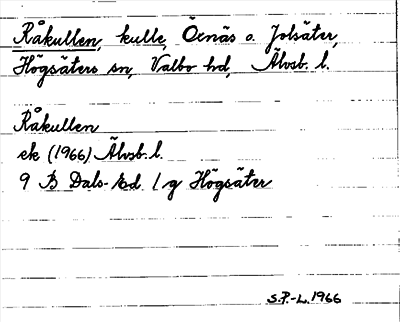 Råkullen, kulle, Örnäs o. Jolsäter,
Högsäters sn, Valbo hd, Älvsb. l.
Råkullen
ek (1966) Älvsb. l.
9 B Dals-Ed 1 g Högsäter
S.P.-L. 1966